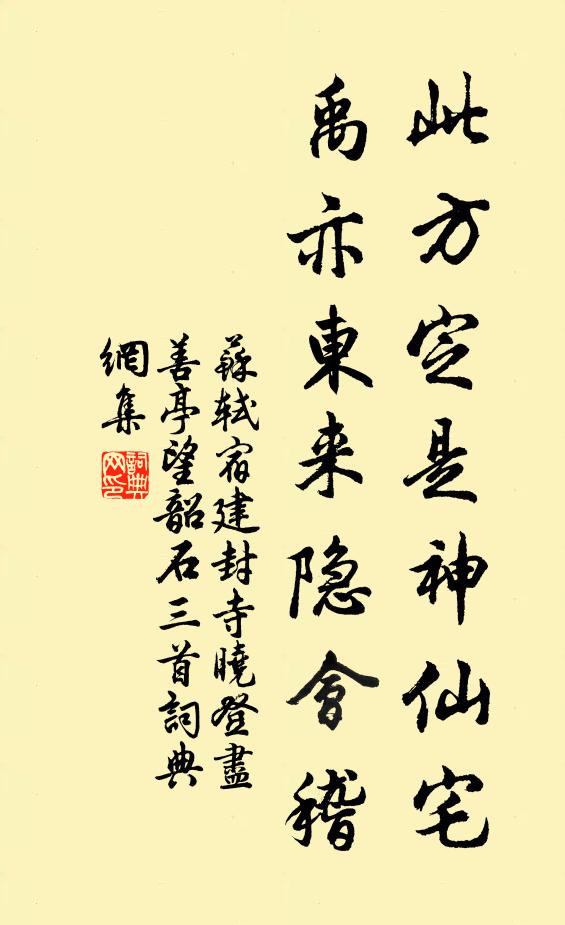 此方定是神仙宅
禹亦東来隐會稽
蘇軾宿建封寺曉登盡
善亭望韶石三首詞典
網集
詞典
网印